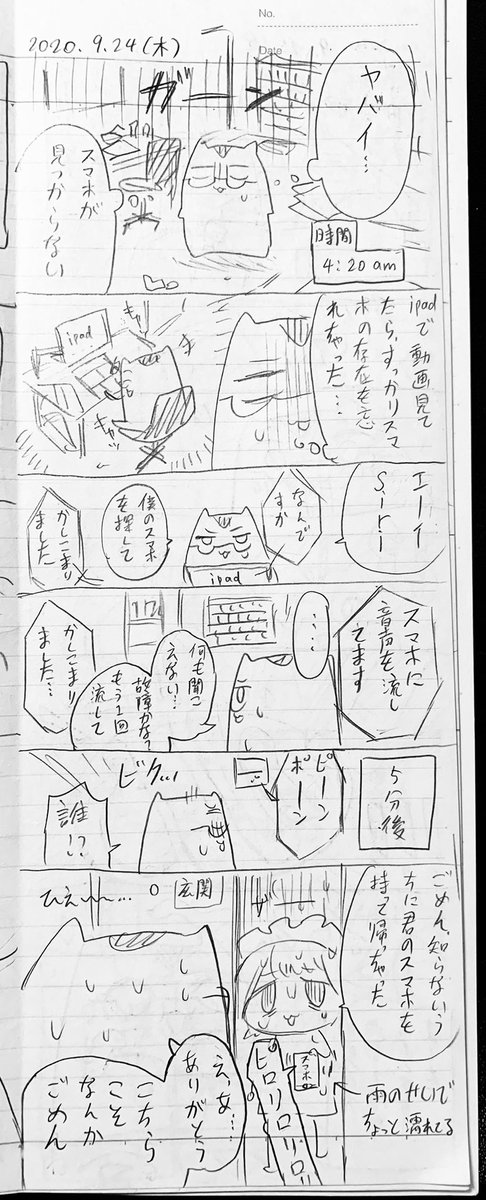 No.
Date
2020.9.24(木)
ヤバイ…
ガーン
スマホが
見つからない
時間
4:20 am
ipadで動画見て
たら、すっかりスマ
ホの存在を忘
れちゃった…
ipad
キャッ
キャッ
エーイ
Siri
なんで
すか
僕のスマホ
を探して
ipad
かしこまり
ました
スマホに
音声を流し
てます
・・・・
何も聞こ
えない…
故障かな?
もう1回
流して
かしこまり
ました…
5分後
ピーン
ポーン
ビクッ
誰!?
ごめん、知らないう
ちに君のスマホを
持って帰っちゃった
ザー
玄関
ひえ〜〜…
スマホ
ピロリロリロリ
雨のせいで
ちょっと濡れてる
え、あ…
ありがとう
こちら
こそ
なんか
ごめん